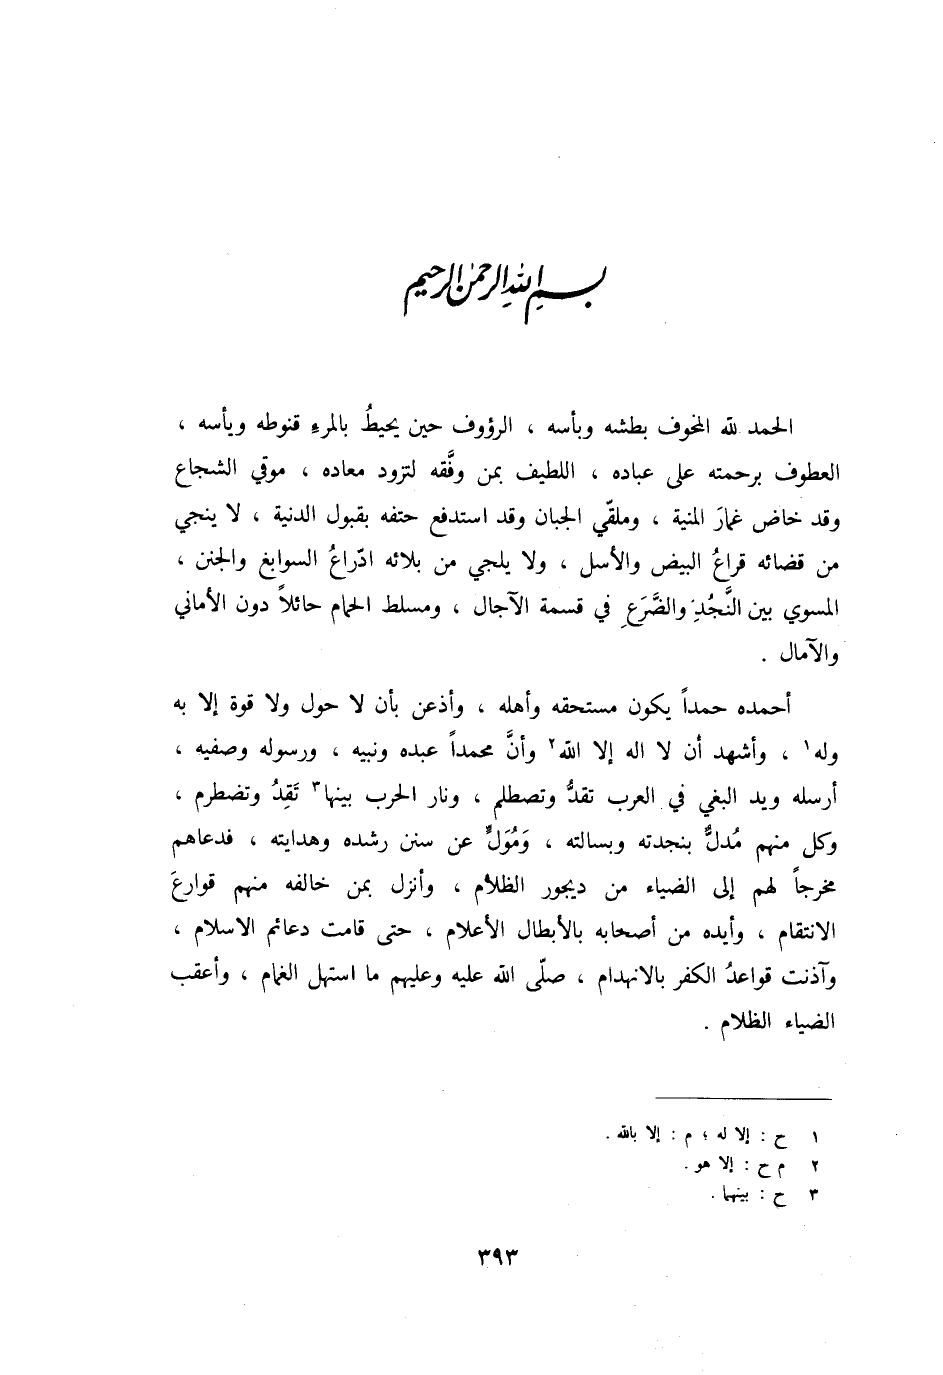 بسم الله الرحمن الرحيم
الحمد لله المخوف بطشه وبأسه ، الرؤوف حين يحيطُ بالمرءِ قنوطه ويأسه ،
العطوف برحمته على عباده ، اللطيف بمن وفَّقه لتزود معاده ، موقي الشجاع
وقد خاض غمارَ المنية ، وملقّي الجبان وقد استدفع حتفه بقبول الدنية ، لا ينجي
من قضائه قراعُ البيض والأسل ، ولا يلجي من بلائه ادّراعُ السوابغ والجنن ،
المسوي بين النَّجُدِ والضَّرَعِ في قسمة الآجال ، ومسلط الحمام حائلاً دون الأماني
والآمال .
أحمده حمداً يكون مستحقه وأهله ، وأذعن بأن لا حول ولا قوة إلا به
وله١ ، وأشهد أن لا اله إلا الله٢ وأنَّ محمداً عبده ونبيه ، ورسوله وصفيه ،
أرسله ويد البغي في العرب تقدُّ وتصطلم ، ونار الحرب بينها٣ تَقِدُ وتضطرم ،
وكل منهم مُدلٌّ بنجدته وبسالته ، وَمُوَلٍّ عن سنن رشده وهدايته ، فدعاهم
مخرجاً لهم إلى الضياء من ديجور الظلام ، وأنزل بمن خالفه منهم قوارعَ
الانتقام ، وأيده من أصحابه بالأبطال الأعلام ، حتى قامت دعائم الاسلام ،
وآذنت قواعدُ الكفر بالانهدام ، صلّى الله عليه وعليهم ما استهل الغمام ، وأعقب
الضياء الظلام .
١ ح : إلا له ؛ م : إلا بالله .
٢ م ح : إلا هو .
٣ ح : بينهما .
٣٩٣